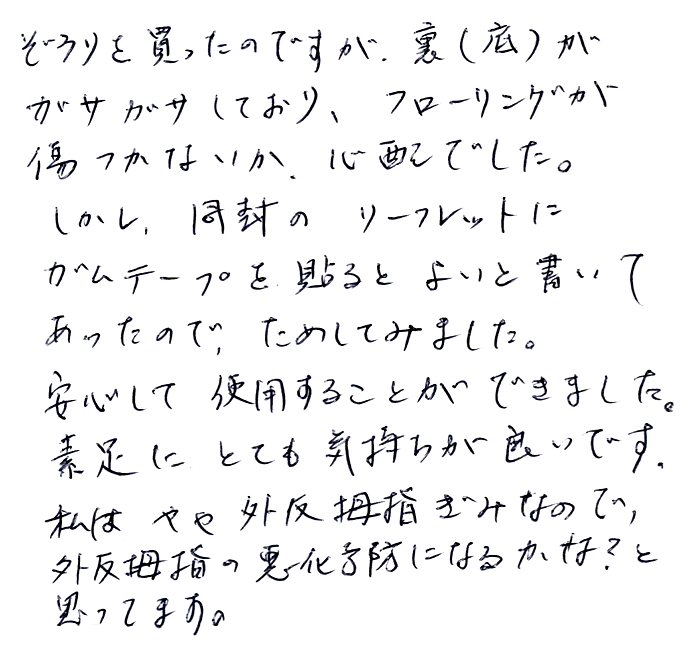 ぞうりを買ったのですが、裏(底)が
ガサガサしており、フローリングが
傷つかないか、心配でした。
しかし、同封のリーフレットに
ガムテープを貼るとよいと書いて
あったので、ためしてみました。
安心して使用することができました。
素足にとても気持ちが良いです。
私はやや外反拇指ぎみなので、
外反拇指の悪化予防になるかな?と
思ってます。